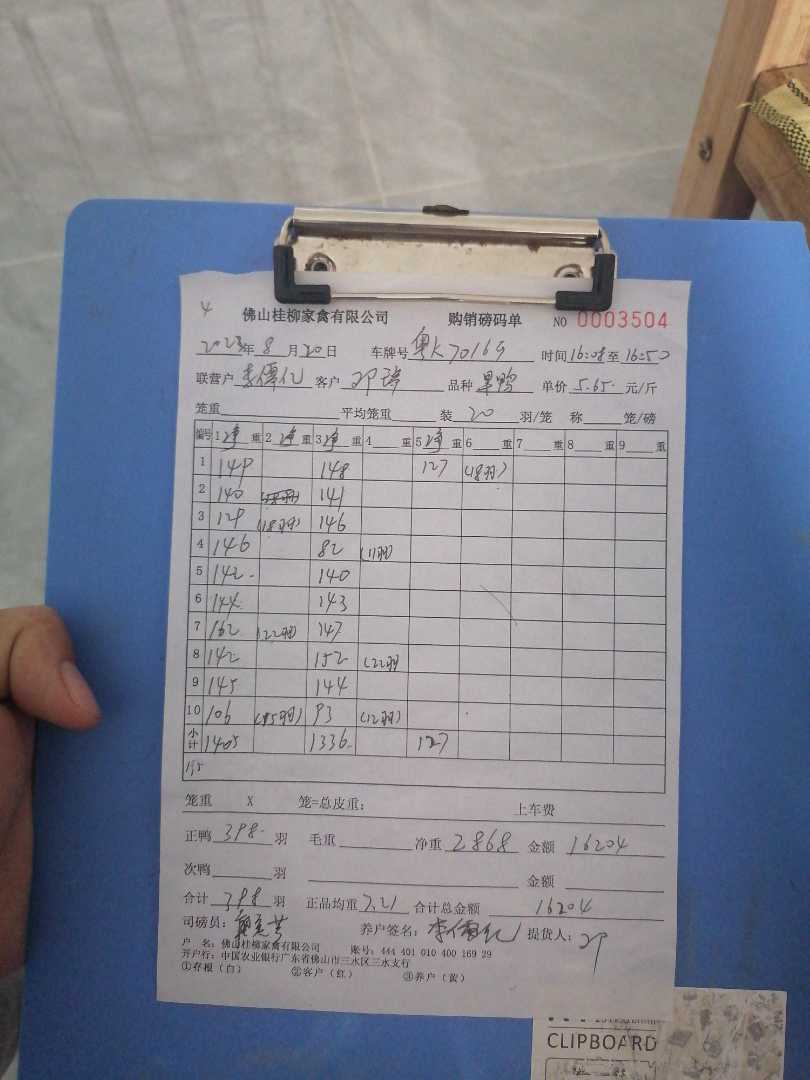 4
佛山桂柳家禽有限公司 购销磅码单 NO 0003504
2023年8月20日 车牌号粤K70165 时间16:08至16:50
联营户李伟亿 客户邓 品种 鸭 单价5.65元/斤
笼重 平均笼重 装20羽/笼 称 笼/磅
编号 1净重 2净重 3净重 4 重 5净重 6 重 7 重 8 重 9 重
1 149 148 127 (18羽)
2 140 141
3 129 (18羽) 146
4 146 82 (11羽)
5 142 140
6 144 143
7 162 (22羽) 147
8 142 152 (22羽
9 145 144
10 106 (15羽) 93 (12羽)
小计 1405 1336 127
笼重 X 笼=总皮重: 上车费
正鸭398羽 毛重 净重2868 金额16204
次鸭 羽 金额
合计398羽 正品均重7.21 合计总金额16204
司磅员: 养户签名:李伟亿 提货人:邓
户 名:佛山桂柳家禽有限公司 账号:444 401 010 400 169 29
开户行:中国农业银行广东省佛山市三水区三水支行
①存根(白) ②客户(红) ③养户(黄)
CLIPBOARD